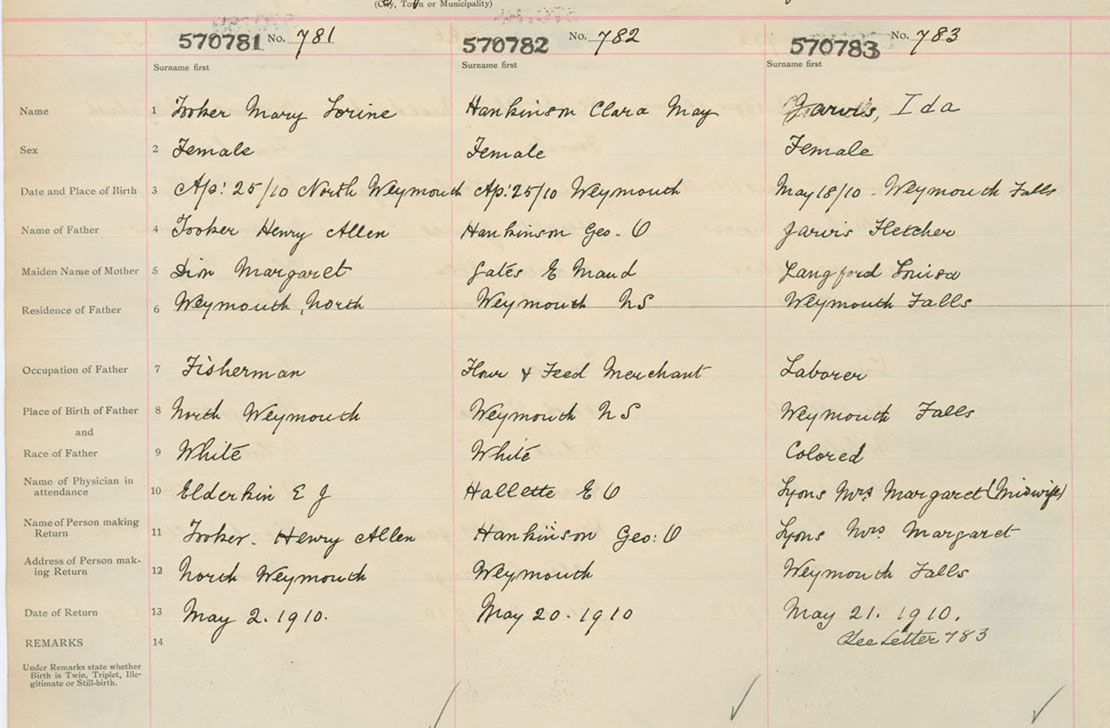 (City, Town or Municipality)
570781 No. 781 570782 No. 782 570783 No. 783
Surname first Surname first Surname first
Name 1 Tooker Mary Lorine Hankinson Clara May Jarvis, Ida
Sex 2 Female Female Female
Date and Place of Birth 3 Ap: 25/10 North Weymouth Ap: 25/10 Weymouth May 18/10 - Weymouth Falls
Name of Father 4 Tooker Henry Allen Hankinson Geo. O Jarvis Fletcher
Maiden Name of Mother 5 Dion Margaret Gates E Maud Langford Louisa
Residence of Father 6 Weymouth, North Weymouth NS Weymouth Falls
Occupation of Father 7 Fisherman Flour & Feed Merchant Laborer
Place of Birth of Father 8 North Weymouth Weymouth NS Weymouth Falls
and
Race of Father 9 White White Colored
Name of Physician in
attendance 10 Elderkin E J Hallette E O Lyons Mrs Margaret (Midwife)
Name of Person making
Return 11 Tooker. Henry Allen Hankinson Geo: O Lyons Mrs Margaret
Address of Person mak-
ing Return 12 North Weymouth Weymouth Weymouth Falls
Date of Return 13 May 2. 1910. May 20. 1910 May 21. 1910.
REMARKS 14 See Letter 783
Under Remarks state whether
Birth is Twin, Triplet, Ille-
gitimate or Still-birth.